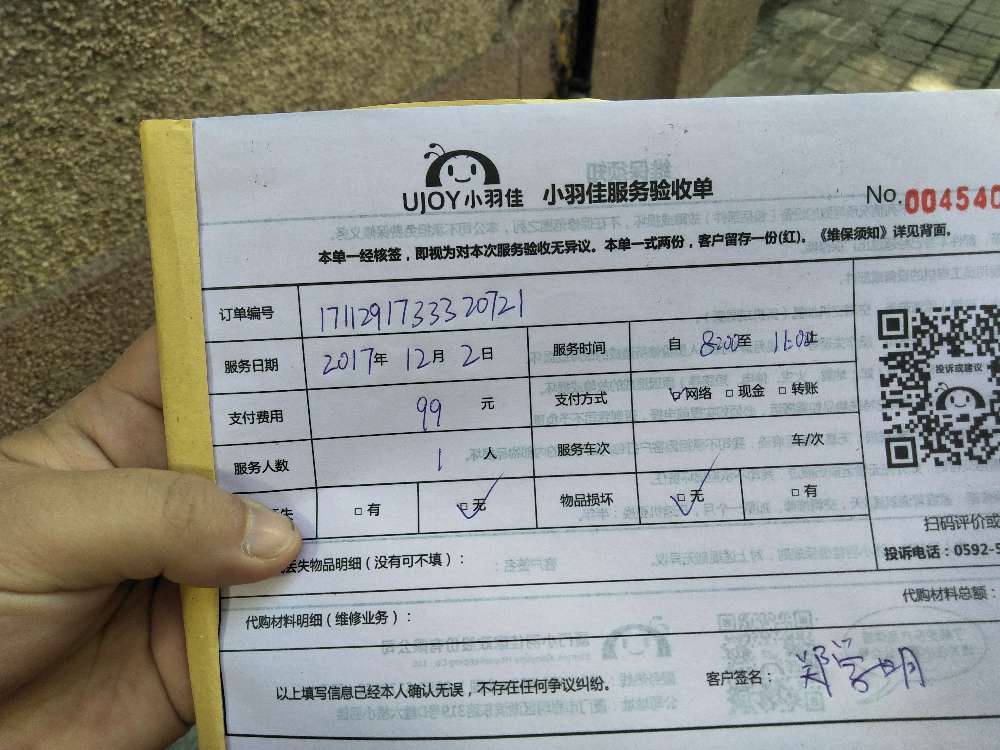 UJOY小羽佳 小羽佳服务验收单 No.004540
本单一经核签，即视为对本次服务验收无异议。本单一式两份，客户留存一份(红)。《维保须知》详见背面。
订单编号 1711291733320721
服务日期 2017年 12月 2日 服务时间 自 8:00至 11:00止
支付费用 99 元 支付方式 网络 现金 转账
投诉或建议
服务人数 1 人 服务车次 车/次
失 有 无 物品损坏 无 有
扫码评价或
丢失物品明细（没有可不填）：
投诉电话：0592-5
代购材料明细（维修业务）：
代购材料总额：
以上填写信息已经本人确认无误，不存在任何争议纠纷。 客户签名：